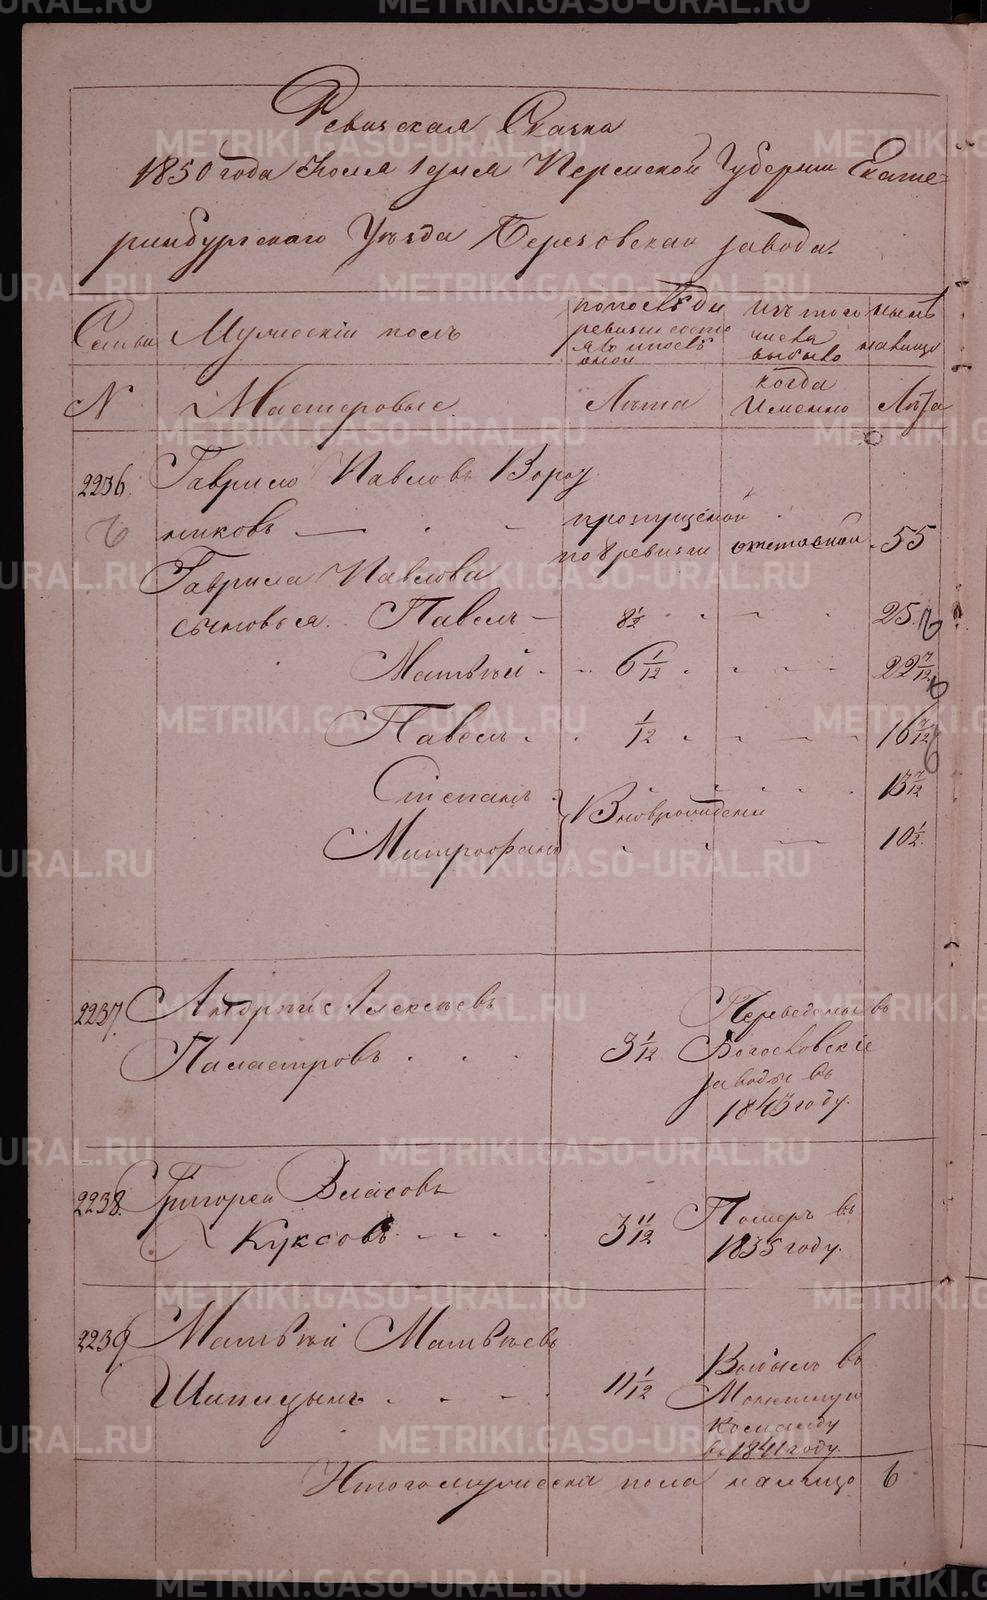 Ревизская Сказка
1850 года Июля 1 дня Пермской Губернии Екате=
ринбургскаго Уѣзда Березовскаго завода.
Семьи Мужескій полъ
по послѣдн ревизіи состо яло и послѣ оной
Изъ того числа выбыло
нынѣ на лицо
N Мастеровые. Лѣта когда Именно Лѣта
2236. Гаврило Павловъ Вороз
никовъ — пропущеной по 8 ревизіи отставной 55
Гаврила Павлова
сыновья. Павелъ — 8½ 25
Матвѣй 6 1/12 22 7/12
Павелъ 1/12 16 7/12
Степанъ 13 7/12
Вновьрожденныи
Митрофанъ 10½
2237. Алексѣевъ
Паластровъ 3 1/12
Переведенъ въ
Богословскіе
заводы въ
1843 году.
2238. Григорей Власовъ
Куксовъ 3 11/12
Померъ въ
1835 году.
2239 Матвѣй Матвѣевъ
Шапицынъ 11 1/12
Выбылъ въ
команду
въ 1841 году.
Итого мужеска пола на лицо 6
METRIKI.GASO-URAL.RU